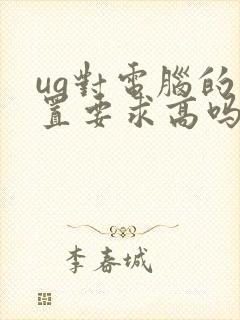 ug對電腦的
置要求高吗
李春城